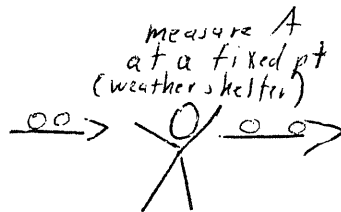 measure A
at a fixed pt
(weather shelter)